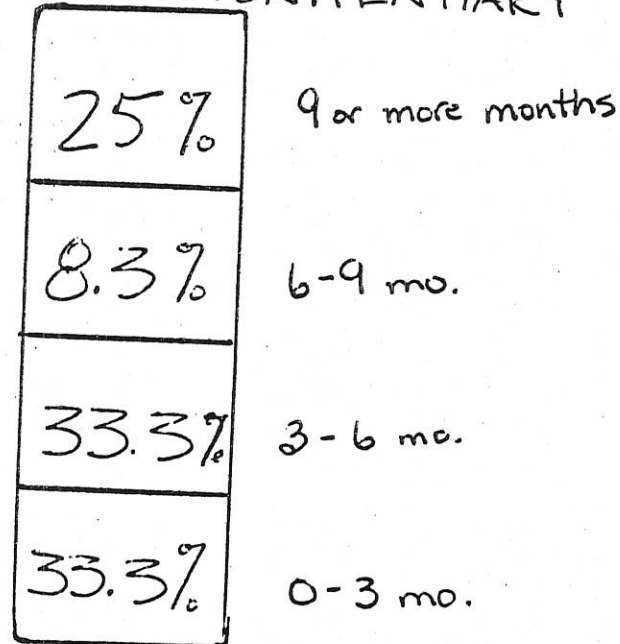 25% 9 or more months
8.3% 6-9 mo.
33.3% 3-6 mo.
33.3% 0-3 mo.